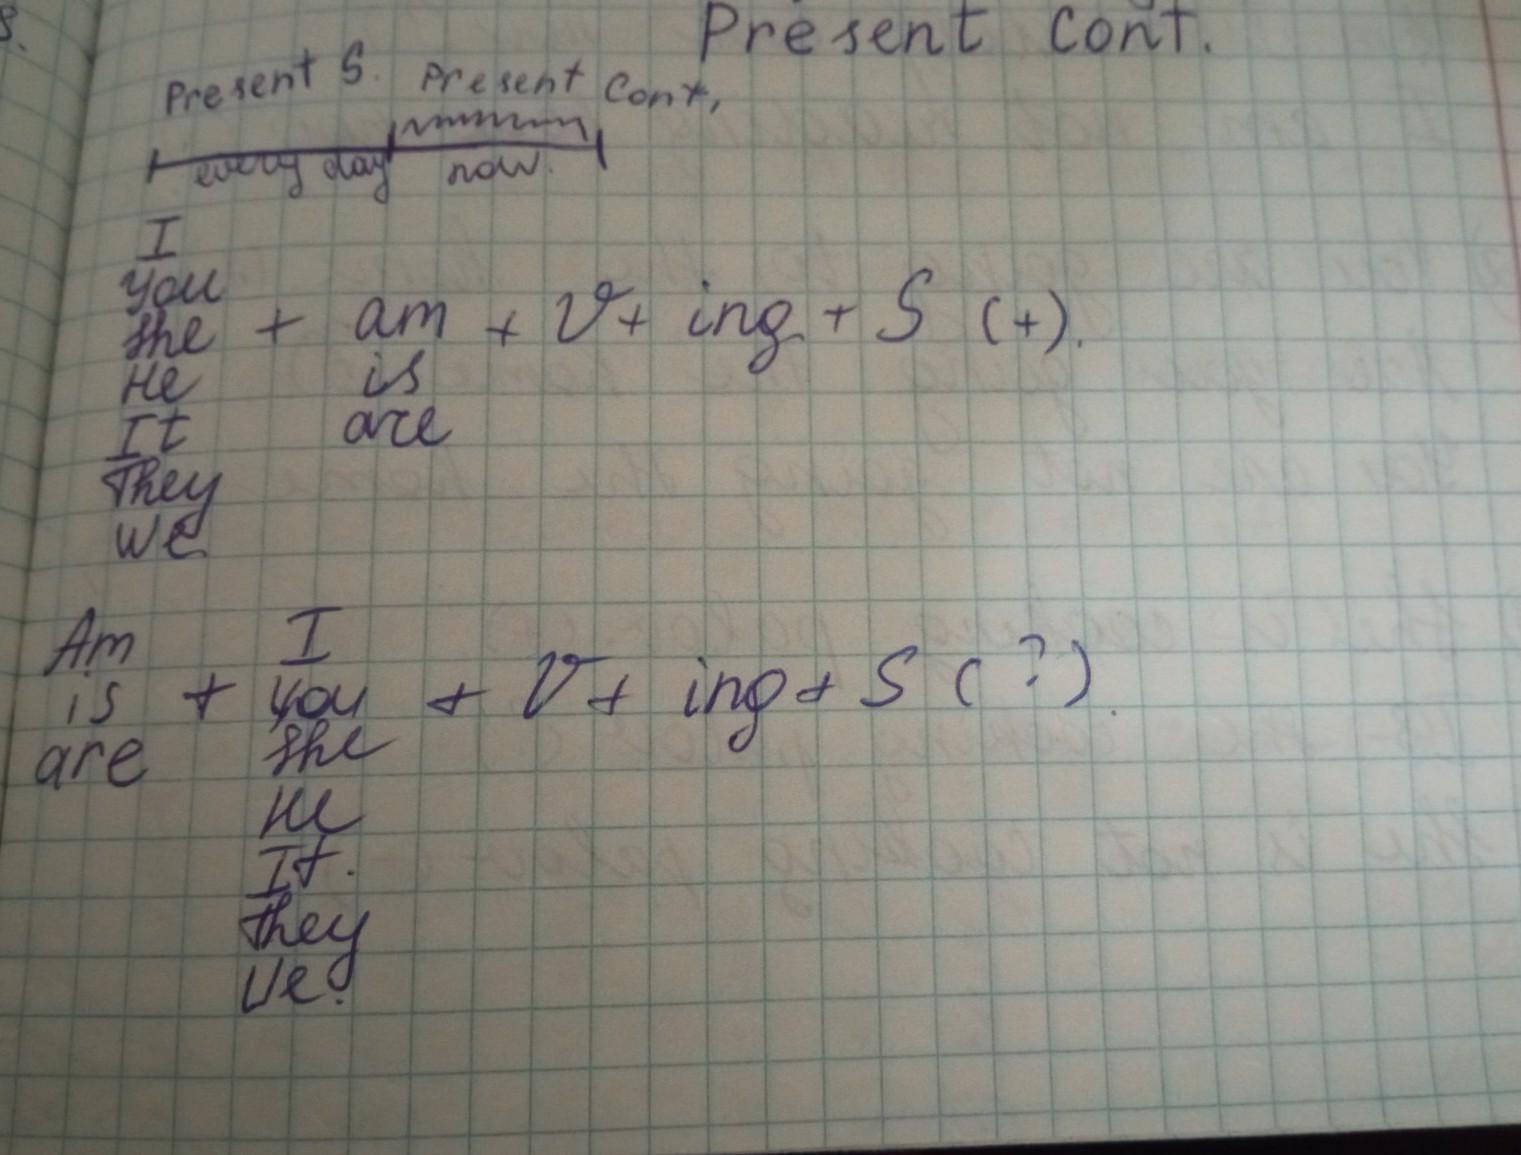 Present Cont.
Present S. Present Cont,
every day now.
I
you
she + am + V + ing + S (+).
He is
It are
They
We
Am I
is + you + V + ing + S (?).
are she
He
It.
they
We.